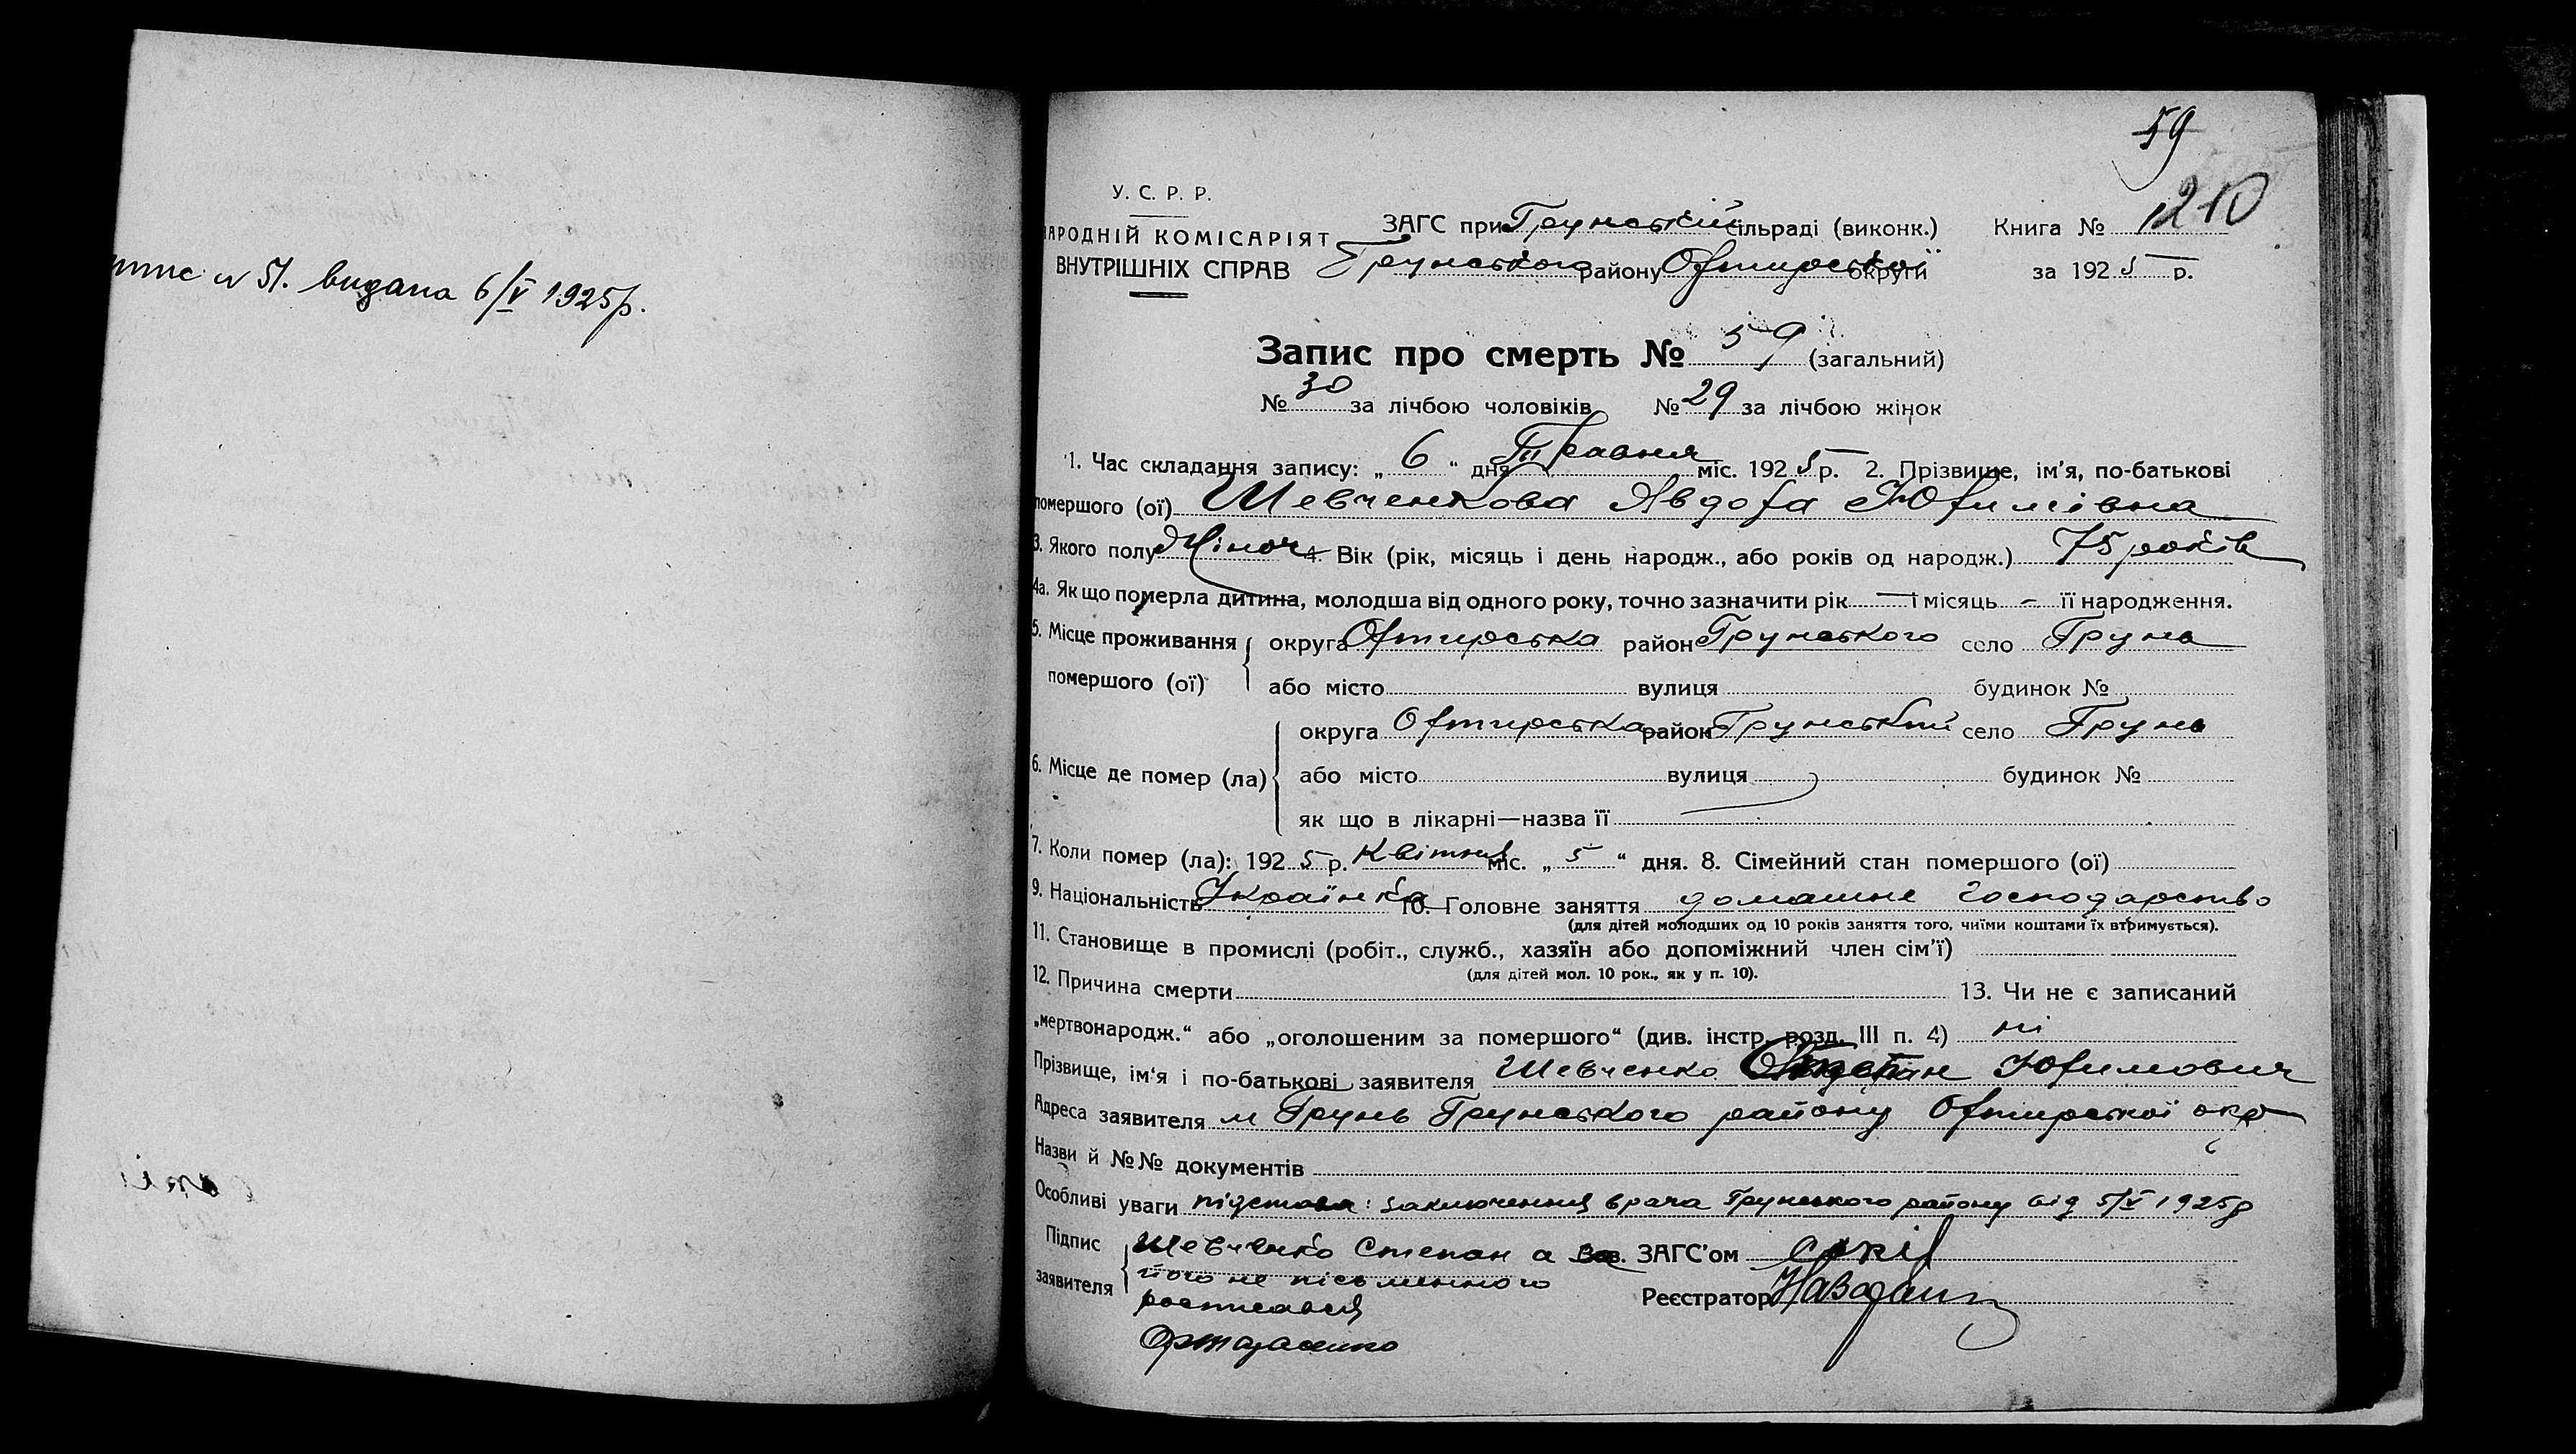 № 51. видана 6/V 1925 р.
59
У. С. Р. Р.
НАРОДНІЙ КОМІСАРІЯТ
ВНУТРІШНІХ СПРАВ
ЗАГС при Грунській сільраді (виконк.) Книга № 1210
Грунського району Охтирської округи за 1925 р.
Запис про смерть № 59 (загальний)
№ 30 за лічбою чоловіків № 29 за лічбою жінок
1. Час складання запису: „6“ дня Травня міс. 1925 р. 2. Прізвище, ім'я, по-батькові
помершого (ої) Шевченкова Авдотя Юхимівна
3. Якого полу Жіноч 4. Вік (рік, місяць і день народж., або років од народж.) 75 років
4а. Як що померла дитина, молодша від одного року, точно зазначити рік — і місяць - її народження.
5. Місце проживання помершого (ої) округа Охтирська район Грунського село Грунь
або місто вулиця будинок №
6. Місце де помер (ла) округа Охтирська район Грунський село Грунь
або місто вулиця будинок №
як що в лікарні—назва її
7. Коли помер (ла): 1925 р. Квітня міс. „5“ дня. 8. Сімейний стан помершого (ої)
9. Національність Українка 10. Головне заняття домашнє господарство
(для дітей молодших од 10 років заняття того, чиїми коштами їх втримується).
11. Становище в промислі (робіт., служб., хазяїн або допоміжний член сім'ї)
(для дітей мол. 10 рок., як у п. 10).
12. Причина смерти 13. Чи не є записаний
„мертвонародж.“ або „оголошеним за помершого“ (див. інстр. розд. III п. 4) ні
Прізвище, ім'я і по-батькові заявителя Шевченко Юхимович
Адреса заявителя м Грунь Грунського району Охтирської окр
Назви й №№ документів
Особливі уваги підстава: заключення врача Грунського району від 5/V 1925 р
Підпис заявителя Шевченко Степан а за Зав. ЗАГС'ом
його не письменного
росписався
Реєстратор